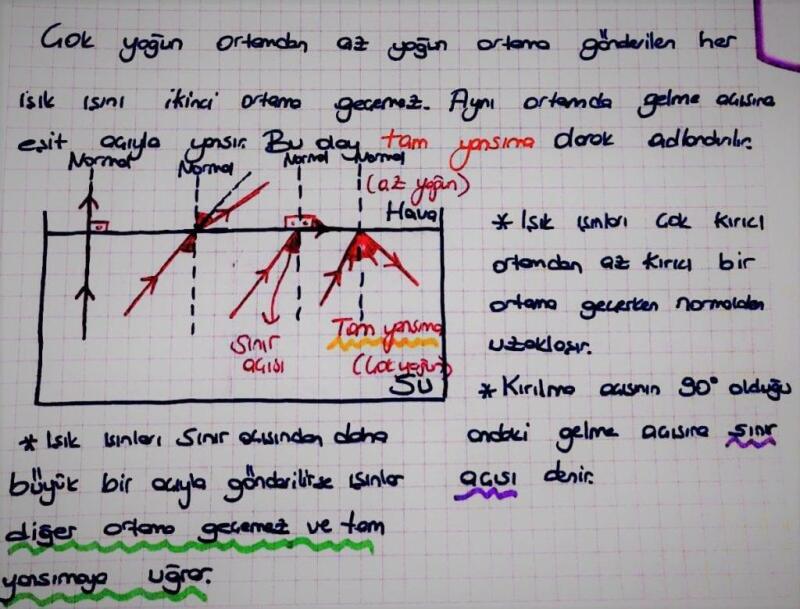 Çok yoğun ortamdan az yoğun ortama gönderilen her
ışık ışını ikinci ortama geçemez. Aynı ortamda gelme açısına
eşit açıyla yansır. Bu olay tam yansıma olarak adlandırılır.
Normal Normal Normal Normal
(az yoğun)
Hava
Sınır
açısı
Tam yansıma
(Çok yoğun)
Su
* Işık ışınları çok kırıcı
ortamdan az kırıcı bir
ortama geçerken normalden
uzaklaşır.
* Kırılma açısının 90° olduğu
andaki gelme açısına sınır
açısı denir.
* Işık ışınları sınır açısından daha
büyük bir açıyla gönderilirse ışınlar
diğer ortama geçemez ve tam
yansımaya uğrar.